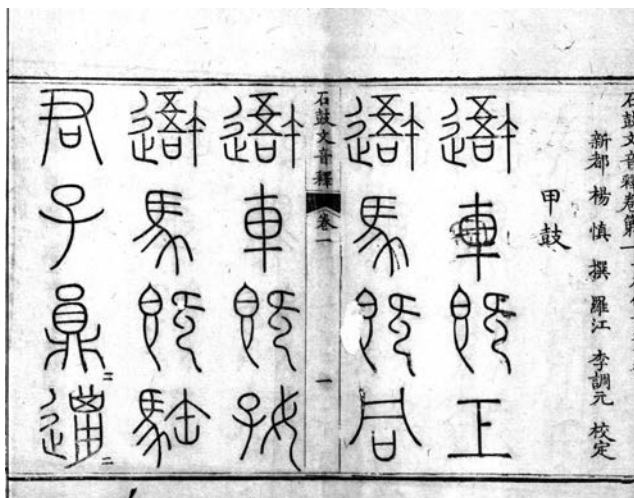 石鼓文音釋卷第一
新都 楊慎 撰 羅江 李調元 校定
甲鼓
𨖍車既工
𨖍馬既同
石鼓文音釋 卷一 一
𨖍車既好
𨖍馬既𩣡
君子員二邋二